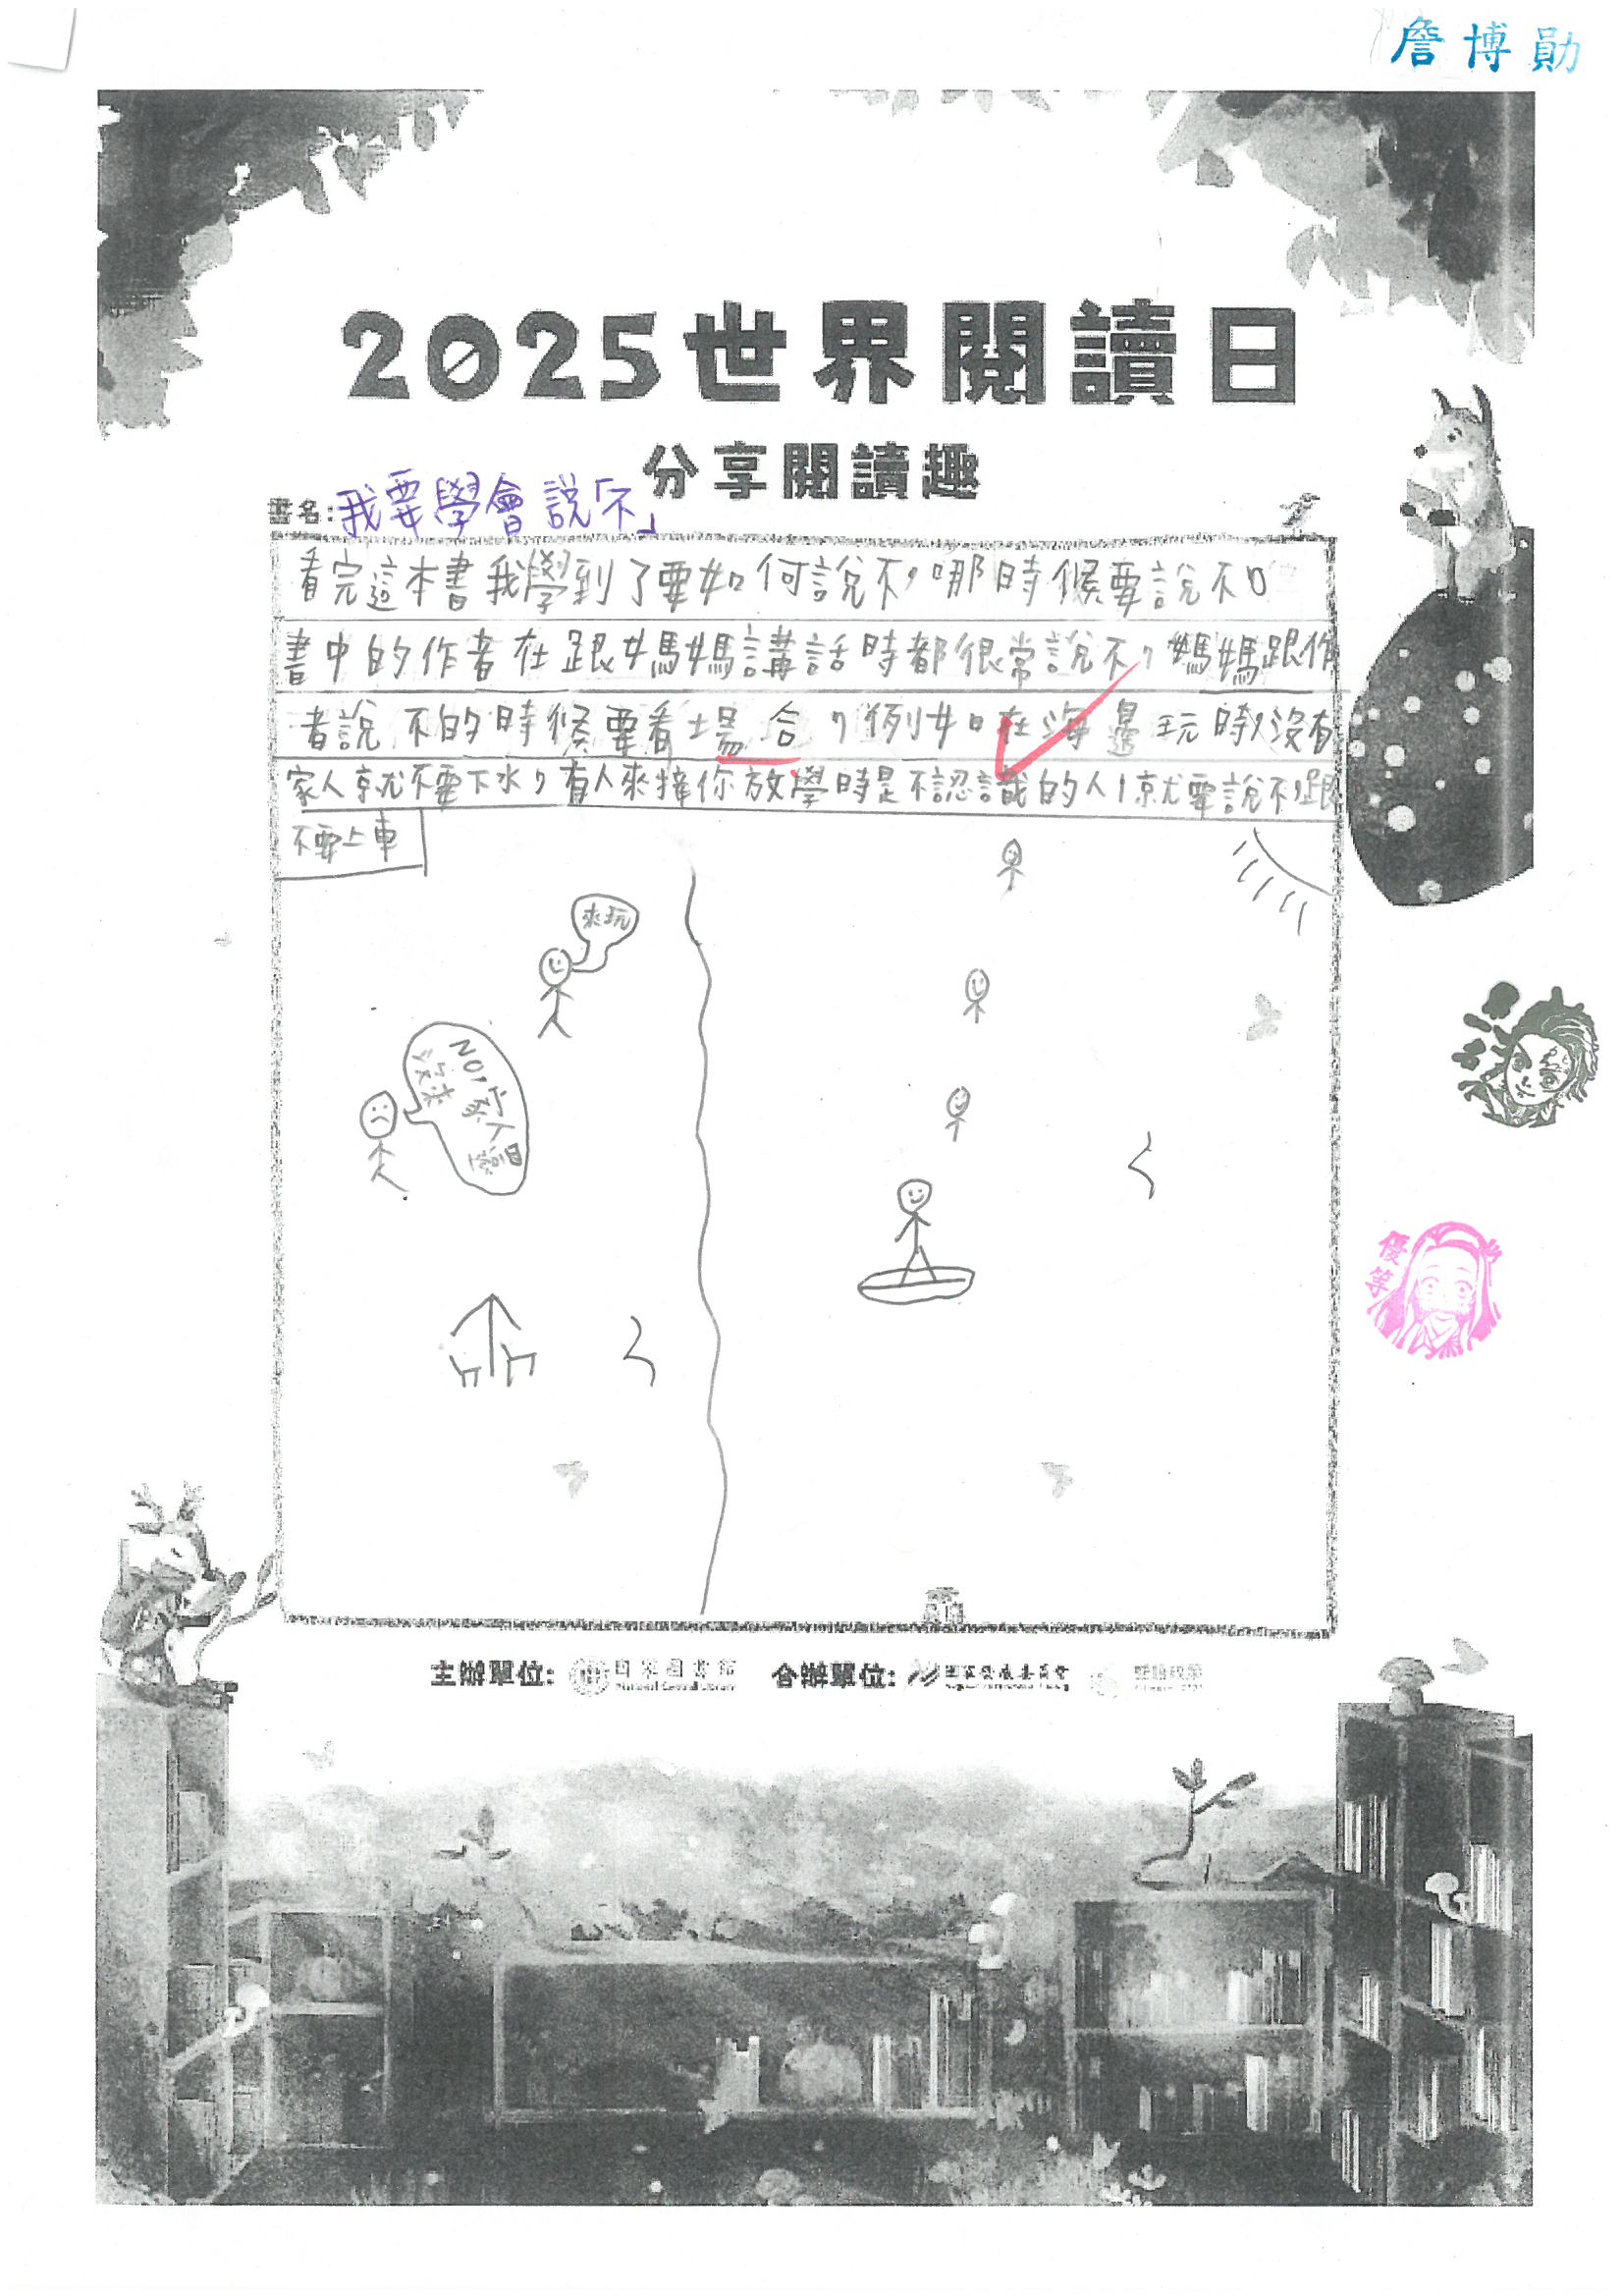 詹博勛
2025世界閱讀日
分享閱讀趣
書名:我要學會說「不」
看完這本書我學到了要如何說不,哪時候要說不。
書中的作者在跟媽媽講話時都很常說不,媽媽跟作
者說不的時候要看場合,例如在海邊玩時,沒有
家人就不要下水,有人來接你放學時是不認識的人,就要說不,跟
不要上車
來玩
NO,家人還
沒來
優等
主辦單位: 國家圖書館 合辦單位: 國家發展委員會
National Central Library